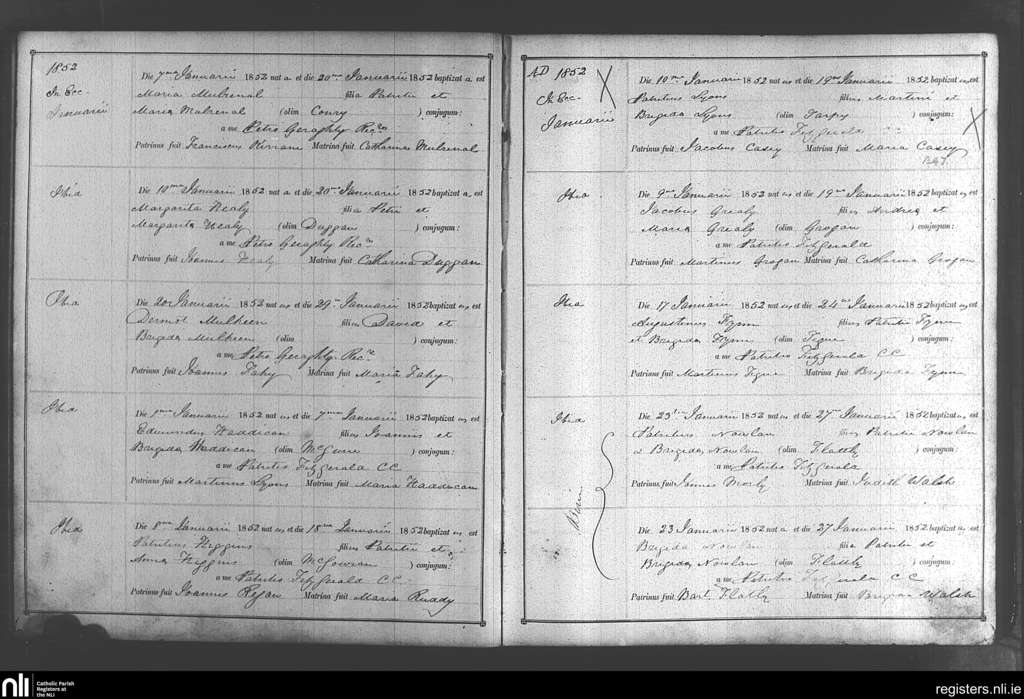 1852
In Ecc.
Januarii
Die 7ma Januarii 1852 nat a et die 20ma Januarii 1852 baptizat a est
Maria Mulrenal filia Patritii et
Maria Mulrenal (olim Conry) conjugum:
a me Petro Geraghty Recr
Patrinus fuit Franciscus Kirrane Matrina fuit Catharina Mulrenal
Ibid
Die 10ma Januarii 1852 nat a et die 20ma Januarii 1852 baptizat a est
Margarita Healy filia Petri et
Margarita Healy (olim Duggan) conjugum:
a me Petro Geraghty Recr
Patrinus fuit Joannes Healy Matrina fuit Catharina Duggan
Ibid
Die 20 Januarii 1852 nat us et die 29 Januarii 1852 baptizat us est
Dermot Mulkeen filius David et
Brigida Mulkeen (olim ) conjugum:
a me Petro Geraghty Recr
Patrinus fuit Joannes Fahy Matrina fuit Maria Fahy
Ibid
Die 1ma Januarii 1852 nat us et die 7ma Januarii 1852 baptizat us est
Edmundus Waddican filius Joannis et
Brigida Waddican (olim McGuire) conjugum:
a me Patritio Fitzgerald CC
Patrinus fuit Martinus Lyons Matrina fuit Maria Waddican
Ibid
Die 8ma Januarii 1852 nat us et die 18ma Januarii 1852 baptizat us est
Patritius Higgins filius Patritii et
Anna Higgins (olim McGowran) conjugum:
a me Patritio Fitzgerald CC
Patrinus fuit Joannes Regan Matrina fuit Maria Ruddy
AD 1852
In Ecc.
Januarii
Die 10ma Januarii 1852 nat us et die 19ma Januarii 1852 baptizat us est
Patritius Lyons filius Martini et
Brigida Lyons (olim Tarpy) conjugum:
a me Patritio Fitzgerald
Patrinus fuit Jacobus Casey Matrina fuit Maria Casey
Ibid
Die 9ma Januarii 1852 nat us et die 19ma Januarii 1852 baptizat us est
Jacobus Grealy filius Andrea et
Maria Grealy (olim Grogan) conjugum:
a me Patritio Fitzgerald
Patrinus fuit Martinus Grogan Matrina fuit Catharina Grogan
Ibid
Die 17 Januarii 1852 nat us et die 24ma Januarii 1852 baptizat us est
Augustinus Flynn filius Patritii Flynn
et Brigida Flynn (olim Tigue) conjugum:
a me Patritio Fitzgerald CC
Patrinus fuit Martinus Tigue Matrina fuit Brigida Flynn
Ibid
Die 23 Januarii 1852 nat us et die 27 Januarii 1852 baptizat us est
Patritius Nowlan filius Patritii Nowlan
et Brigida Nowlan (olim Flatly) conjugum:
a me Patritio Fitzgerald
Patrinus fuit James Morly Matrina fuit Judith Walsh
Die 23 Januarii 1852 nat a et die 27 Januarii 1852 baptizat a est
Brigida Nowlan filia Patritii et
Brigida Nowlan (olim Flatly) conjugum:
a me Patritio Fitzgerald CC
Patrinus fuit Bart. Flatly Matrina fuit Brigida Walsh
nli Catholic Parish
Registers at
the NLI
registers.nli.ie